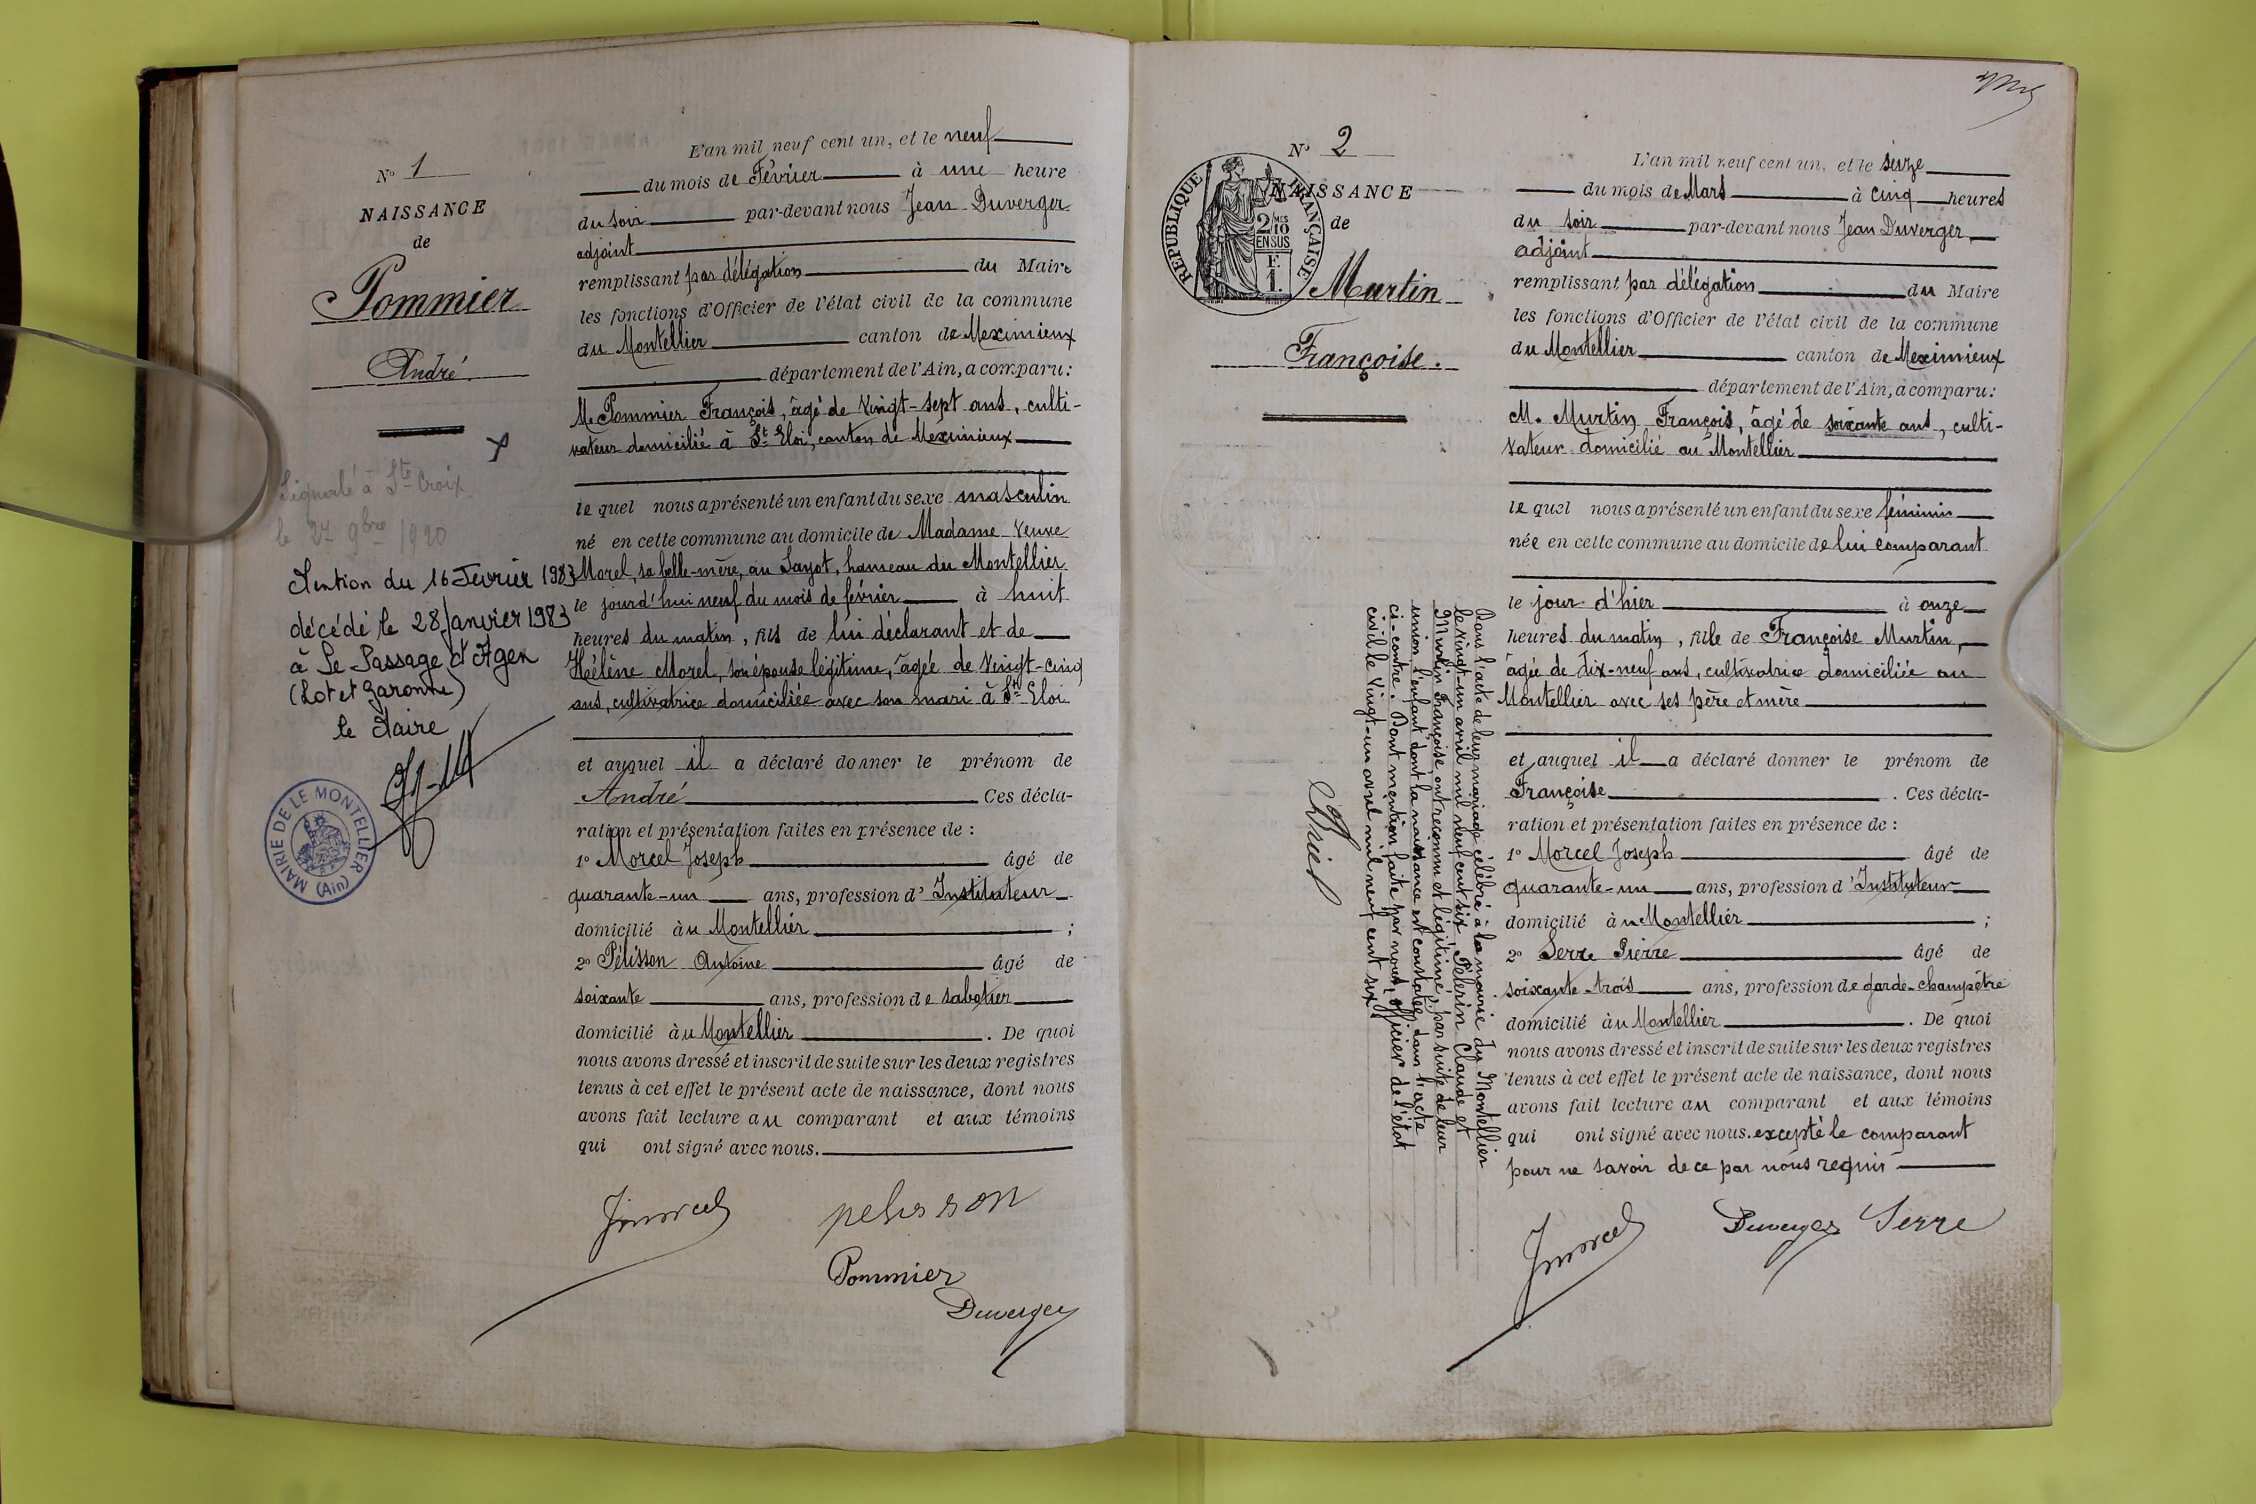 N° 1
NAISSANCE
de
Pommier
André
Signalé à Ste Croix
le 27 9bre 1920
Mention du 16 Février 1983
décédé le 28 Janvier 1983
à Le Passage d'Agen
(Lot et Garonne)
le Maire
MAIRIE DE LE MONTELLIER
(Ain)
L'an mil neuf cent un, et le neuf
du mois de Février à une heure
du soir par-devant nous Jean Duverger
adjoint
remplissant par délégation du Maire
les fonctions d'Officier de l'état civil de la commune
du Montellier canton de Meximieux
département de l'Ain, a comparu:
M. Pommier François, âgé de vingt-sept ans, culti-
vateur domicilié à St Eloi, canton de Meximieux
le quel nous a présenté un enfant du sexe masculin
né en cette commune au domicile de Madame Veuve
Morel, sa belle-mère, au Sayot, hameau du Montellier
le jourd'hui neuf du mois de février à huit
heures du matin, fils de lui déclarant et de
Hélène Morel, son épouse légitime, âgée de vingt-cinq
ans, cultivatrice domiciliée avec son mari à St Eloi
et auquel il a déclaré donner le prénom de
André Ces décla-
ration et présentation faites en présence de :
1° Morcel Joseph âgé de
quarante-un ans, profession d'Instituteur
domicilié au Montellier ;
2° Pélisson Antoine âgé de
soixante ans, profession de sabotier
domicilié au Montellier . De quoi
nous avons dressé et inscrit de suite sur les deux registres
tenus à cet effet le présent acte de naissance, dont nous
avons fait lecture au comparant et aux témoins
qui ont signé avec nous.
Jmorcel pelisson
Pommier
Duverger
N° 2
NAISSANCE
de
RÉPUBLIQUE FRANÇAISE
2/10 MES
EN SUS
F.
1.
Murtin
Françoise.
Dans l'acte de leur mariage célébré à la mairie du Montellier
le vingt-un avril mil neuf cent six, Pélerin Claude et
Murtin Françoise ont reconnu et légitimé, par suite de leur
union, l'enfant dont la naissance est constatée dans l'acte
ci-contre. Dont mention faite par nous, officier de l'état
civil le vingt-un avril mil neuf cent six.
L'an mil neuf cent un, et le seize
du mois de Mars à cinq heures
du soir par-devant nous Jean Duverger
adjoint
remplissant par délégation du Maire
les fonctions d'Officier de l'état civil de la commune
du Montellier canton de Meximieux
département de l'Ain, a comparu:
M. Murtin François, âgé de soixante ans, culti-
vateur domicilié au Montellier
le quel nous a présenté un enfant du sexe féminin
née en cette commune au domicile de lui comparant
le jour d'hier à onze
heures du matin, fille de Françoise Murtin,
âgée de dix-neuf ans, cultivatrice domiciliée au
Montellier avec ses père et mère
et auquel il a déclaré donner le prénom de
Françoise . Ces décla-
ration et présentation faites en présence de :
1° Morcel Joseph âgé de
quarante-un ans, profession d'Instituteur
domicilié au Montellier ;
2° Serre Pierre âgé de
soixante-trois ans, profession de garde-champêtre
domicilié au Montellier . De quoi
nous avons dressé et inscrit de suite sur les deux registres
tenus à cet effet le présent acte de naissance, dont nous
avons fait lecture au comparant et aux témoins
qui ont signé avec nous. excepté le comparant
pour ne savoir de ce par nous requis
Jmorcel Duverger Serre